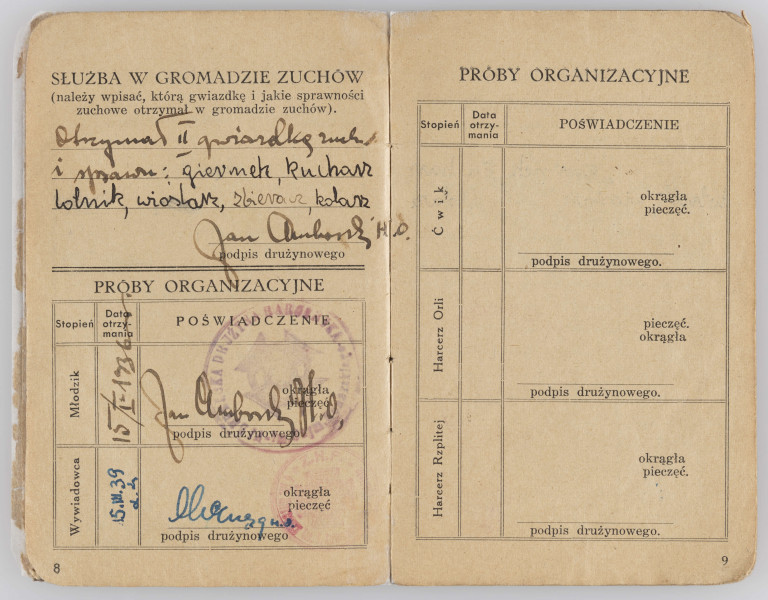 SŁUŻBA W GROMADZIE ZUCHÓW
(należy wpisać, którą gwiazdkę i jakie sprawności
zuchowe otrzymał w gromadzie zuchów).
Otrzymał II gwiazdkę zucha
i sprawn: giermek, kucharz
lotnik, wioślarz, zbieracz, kolarz
Jan Amborski H.O.
podpis drużynowego
PRÓBY ORGANIZACYJNE
Stopień
Data
otrzy-
mania
POŚWIADCZENIE
Młodzik
15/I-1936
Jan Amborski H.O.
okrągła
pieczęć
podpis drużynowego
Wywiadowca
15.III.39
okrągła
pieczęć
podpis drużynowego
8
PRÓBY ORGANIZACYJNE
Stopień
Data
otrzy-
mania
POŚWIADCZENIE
Ćwik
okrągła
pieczęć.
podpis drużynowego.
Harcerz Orli
pieczęć.
okrągła
podpis drużynowego.
Harcerz Rzplitej
okrągła
pieczęć.
podpis drużynowego.
9